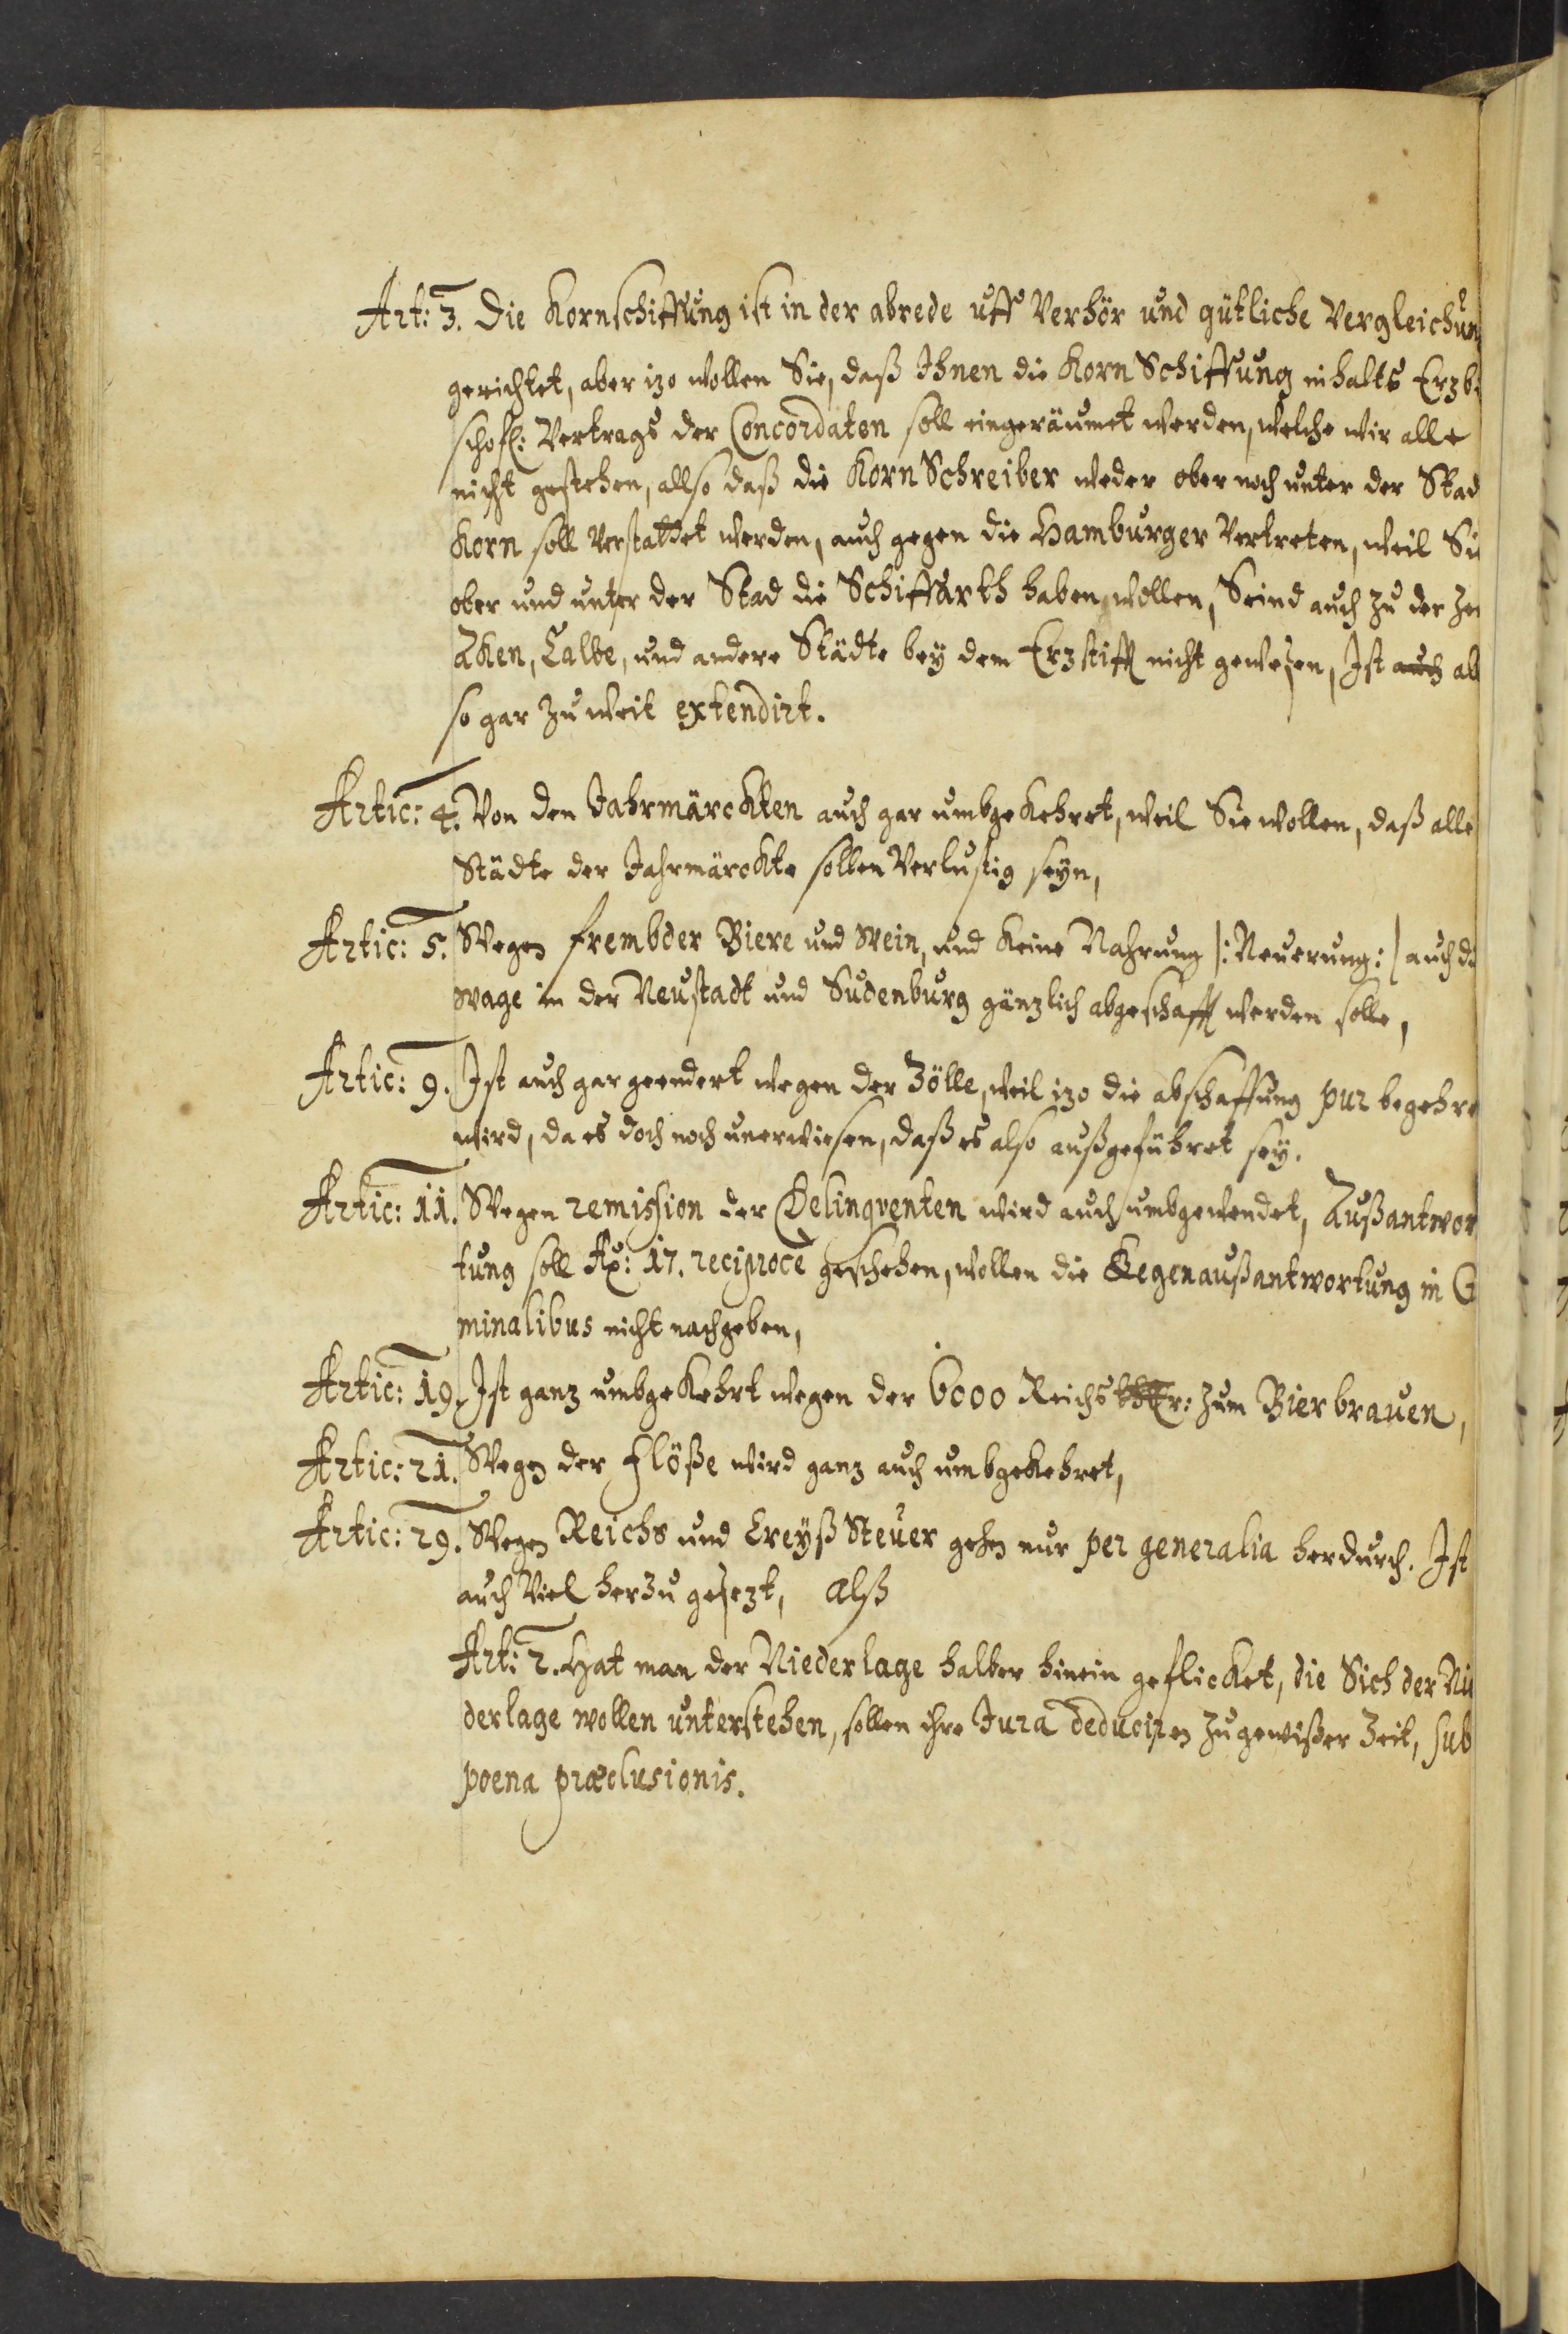 Art: 3. Die Kornschiffung ist in der abrede uff Verhör und gütliche Vergleichun
gerichtet, aber izo wollen Sie, daß Ihnen die Korn Schiffung inhalts Erzbi
schofl: Vertrags der Concordaten soll eingeräumet werden, welche wir alle
nicht gestehen, allso daß die Korn Schreiber weder ober noch unter der Stad
Korn soll verstattet werden, auch gegen die Hamburger Vertreten, weil Sie
ober und unter der Stad die Schiffarth haben wollen, Seind auch zu der Zei
Aken, Calbe, und andere Städte bey dem Erzstifft nicht gewesen, Ist auch al
so gar zu weit extendirt.
Artic: 4. Von den Jahrmärckten auch gar umbgekehret, weil Sie wollen, daß alle
Städte der Jahrmärckte sollen Verlustig seyn,
Artic: 5. Wegen frembder Biere und Wein, und keine Nahrung /: Neuerung: / auch di
Wage in der Neustadt und Sudenburg gänzlich abgeschafft werden solle,
Artic: 9. Ist auch gar geendert wegen der Zölle, weil izo die abschaffung pur begehre
wird, da es doch noch unerwiesen, daß es also außgeführet sey.
Artic: 11. Wegen remission der Delinqventen wird auch umbgewendet, Außantwor
tung soll Ax: 17. reciproce geschehen, wollen die Kegenaußantwortung in C
minalibus nicht nachgeben,
Artic: 19. Ist ganz umbgekehrt wegen der 6000 Reichsthlr: zum Bierbrauen,
Artic: 21. Wegen der Flöße wird ganz auch umbgekehret,
Artic: 29. Wegen Reichs und Creyß Steuer gehen nur per generalia herdurch. Ist
auch Viel herzu gesezt, alß
Art: 2. Hat man der Niederlage halber hinein geflicket, die Sich der Nie
derlage wollen unterstehen, sollen ihre Jura deduciren zu gewißer Zeit, sub
poena præclusionis.